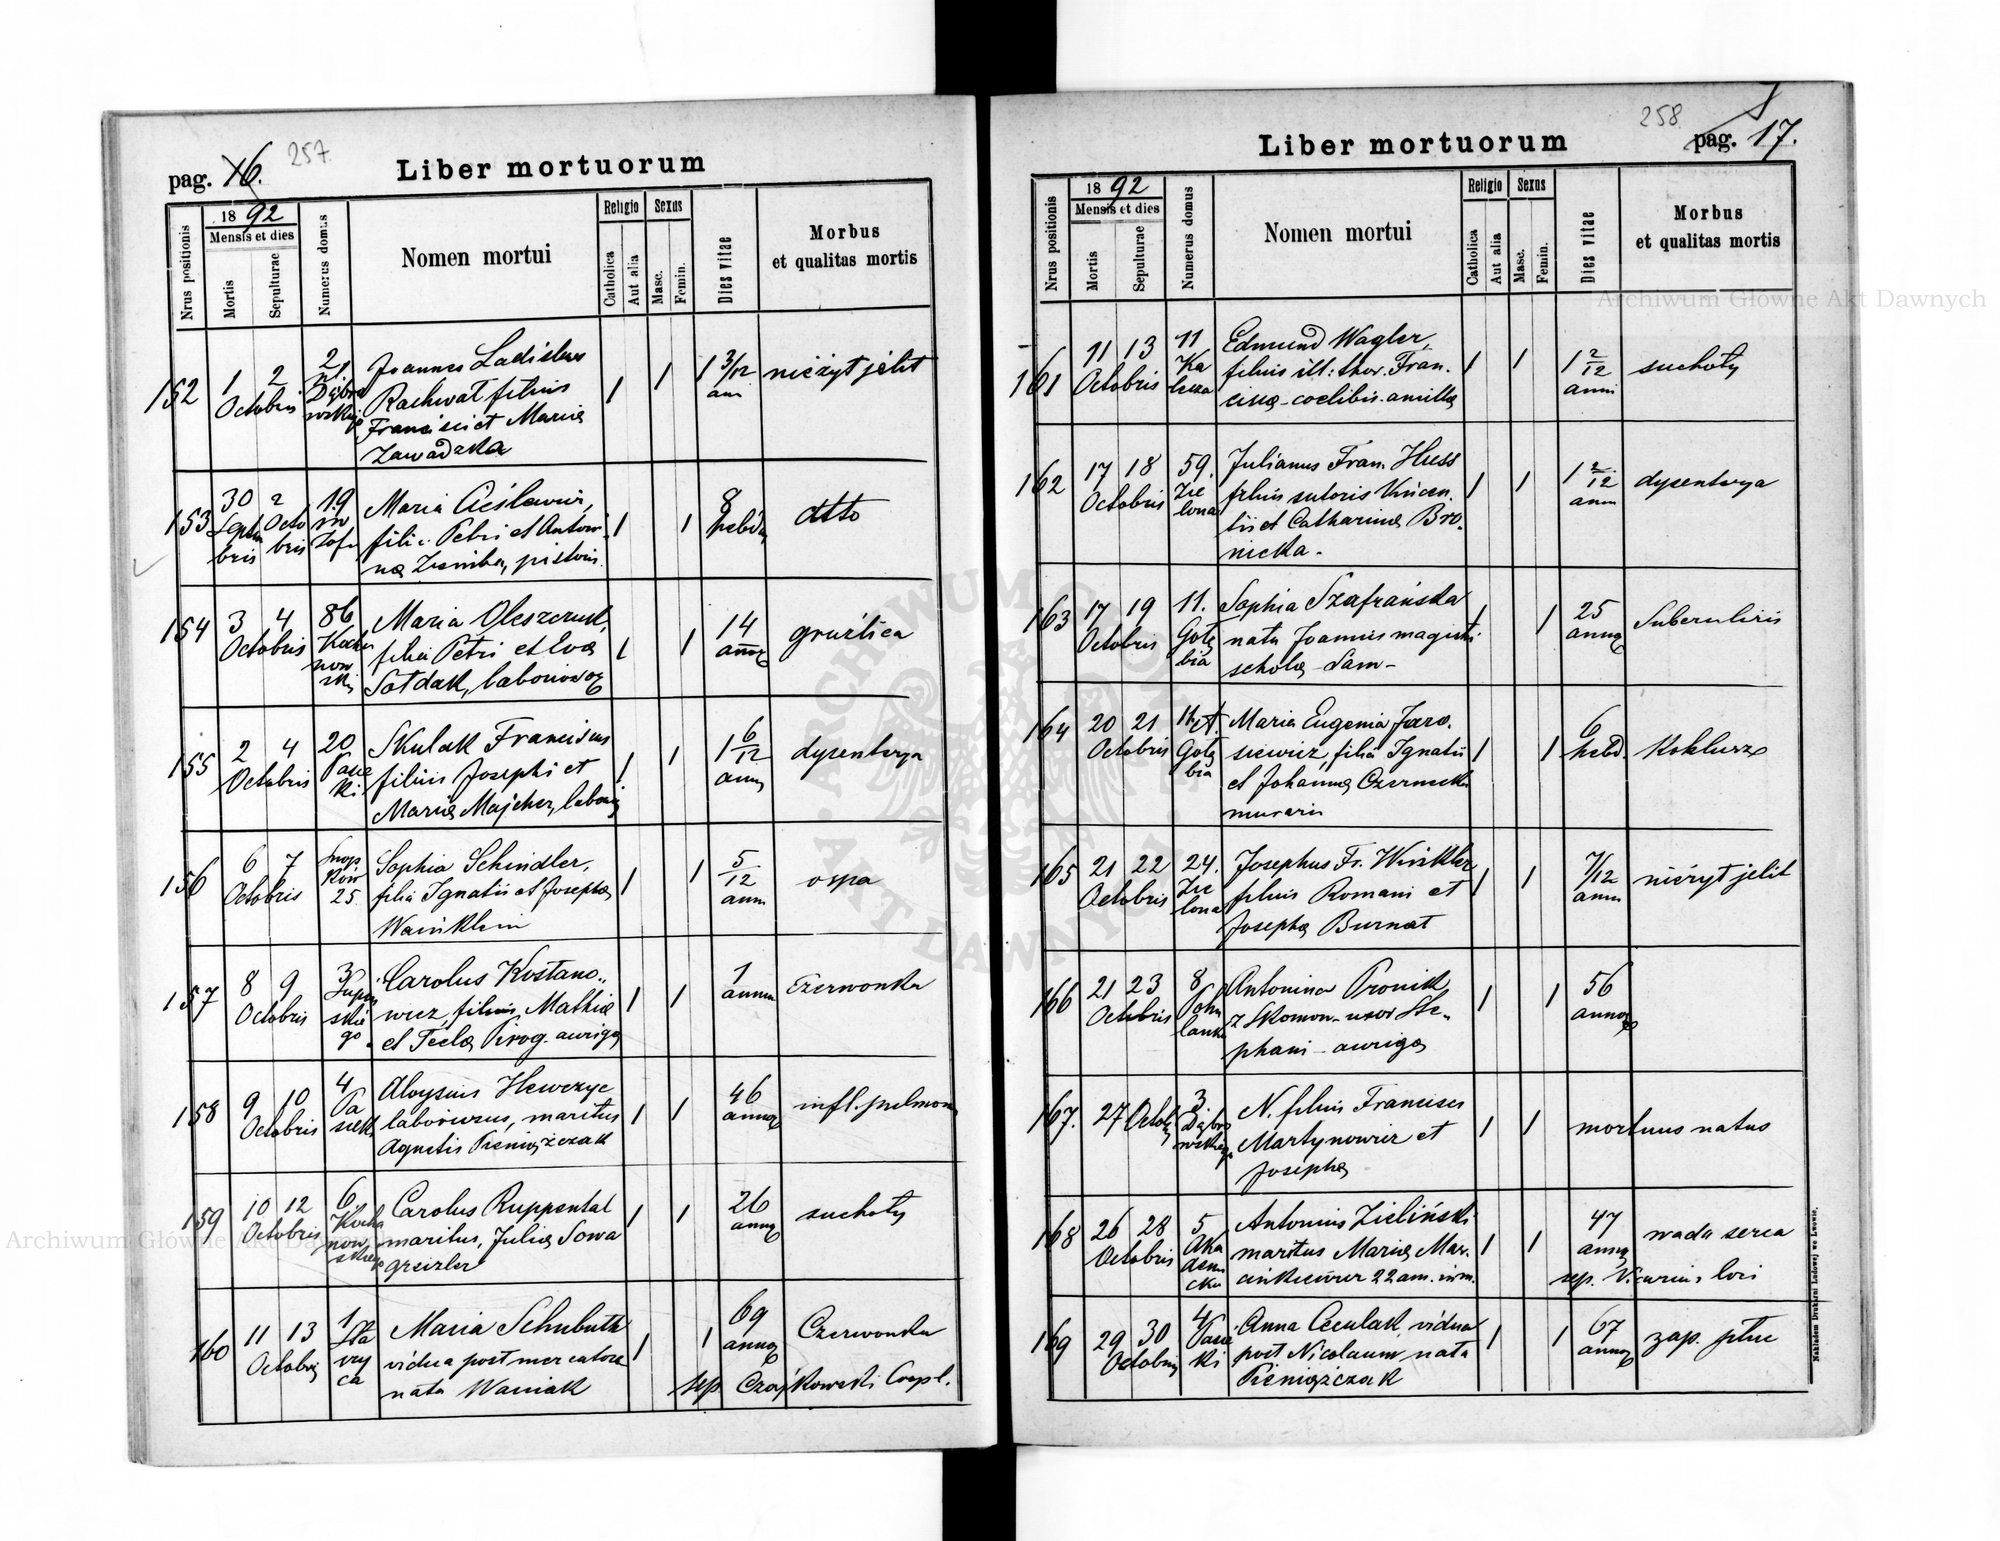 257
pag. 16.
Liber mortuorum
Nrus positionis
1892
Mensis et dies
Mortis
Sepulturae
Numerus domus
Nomen mortui
Religio
Catholica
Aut alia
Sexus
Masc.
Femin.
Dies vitae
Morbus
et qualitas mortis
152
1 2
Octobris
Joannes Ladislaus
Rachwał filius
Francisci et Maria
Zawadzka
1 1
1 3/12
ann
nieżyt jelit
153
30 2
Septem Octo
bris bris
19
filia Petri et Antoni
na Ziemba, pistoris
1 1
8
hebd
dtto
154
3 4
Octobris
86
Kocha
now
ski
Maria Oleszczuk,
filia Petri et Eva
Sołdak, laboriosor
1 1
14
annor
gruźlica
155
2 4
Octobris
20
Pasie
ki
Skulak Franciscus
filius Josephi et
Maria Majcher, labori
1 1
1 6/12
anni
dysenterya
156
6 7
Octobris
Snop
ków
25
Sophia Schindler,
filia Ignatii et Josepha
1 1
5
12
anni
ospa
157
8 9
Octobris
3
Supiń
skie
go
Carolus Kostano..
wicz, filius, Mathia
et Tecla Pirog. auriga
1 1
1
annum
Czerwonka
158
9 10
Octobris
4
Pa
sieki
Aloysius Hewczyc
laboriosus, maritus
Agnetis Pieniążczak
1 1
46
annor
infl. pulmon
159
10 12
Octobris
6
Kocha
now
skiego
Carolus Ruppental
maritus, Julia Sowa
greizler
1 1
26
annor
suchoty
160
11 13
Octobris
1
Sta
vry
ca
Maria Schubuth
vidua post mercatore
nata Waniak
1 1
69
annor
Czerwonka
sep. Czajkowski Coopl.
258
pag. 17.
Liber mortuorum
Nrus positionis
1892
Mensis et dies
Mortis
Sepulturae
Numerus domus
Nomen mortui
Religio
Catholica
Aut alia
Sexus
Masc.
Femin.
Dies vitae
Morbus
et qualitas mortis
161
11 13
Octobris
11
Ka
lecza
Edmund Wagler,
filius ill: thor. Fran.
cisca - coelibis. ancilla
1 1
1 2/12
anni
suchoty
162
17 18
Octobris
59.
Zie
lona
Julianus Fran. Huss
filius sutoris Vincen.
tii et Catharina Bro.
nicka.
1 1
1 2/12
anni
dysenterya
163
17 19
Octobris
11.
Gołę
bia
Sophia Szafrańska
nata Joannis magistri
schola - Sam -
1 1
25
annor
Tuberculosis
164
20 21
Octobris
11. A.
Gołę
bia
Maria Eugenia Jaro.
siewicz, filia Ignatii
et Johanna Czernecka
murarii
1 1
6
hebd.
Koklusz
165
21 22
Octobris
24.
Zie
lona
Josephus Fr. Winkler
filius Romani et
Josepha Burnat
1 1
7/12
anni
nieżyt jelit
166
21 23
Octobris
8
Pohu
lanka
Antonina Pronik
z Skomon - uxor Ste.
phani - auriga
1 1
56
annor
167.
27 Octobr
3
Dąbro
wskiego
N. filius Francisci
Martynowicz et
Josepha
1 1
mortuus natus
168
26 28
Octobris
5
Aka
demi
cka
Antonius Zieliński
maritus Maria Mar.
cinkiewicz 22 am. irm.
1 1
47
annor
wada serca
sep. Vicarius loci
169
29 30
Octobris
4
Pasie
ki
Anna Cieculak, vidua
post Nicolaum nata
Pieniążczak
1 1
67
annor
zap. płuc
Nakładem Drukarni Ludowej we Lwowie.
Archiwum Główne Akt Dawnych
Archiwum Główne Akt Dawnych